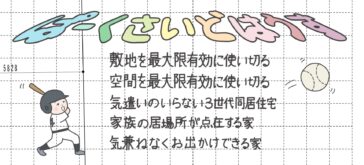 ぱーくさいどはうす
5828
敷地を最大限有効に使い切る
空間を最大限有効に使い切る
気遣いのいらない3世代同居住宅
家族の居場所が点在する家
気兼ねなくお出かけできる家